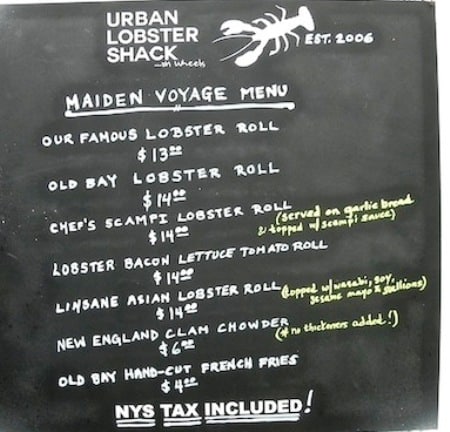 URBAN
LOBSTER
SHACK
...on wheels
EST. 2006
MAIDEN VOYAGE MENU
OUR FAMOUS LOBSTER ROLL
$13.00
OLD BAY LOBSTER ROLL
$14.00
CHEF'S SCAMPI LOBSTER ROLL (served on garlic bread
& topped w/ scampi sauce)
$14.00
LOBSTER BACON LETTUCE TOMATO ROLL
$14.00
LINSANE ASIAN LOBSTER ROLL (topped w/ wasabi, soy,
sesame mayo & scallions)
$14.00
NEW ENGLAND CLAM CHOWDER (* no thickeners added!)
$6.00
OLD BAY HAND-CUT FRENCH FRIES
$4.00
NYS TAX INCLUDED!